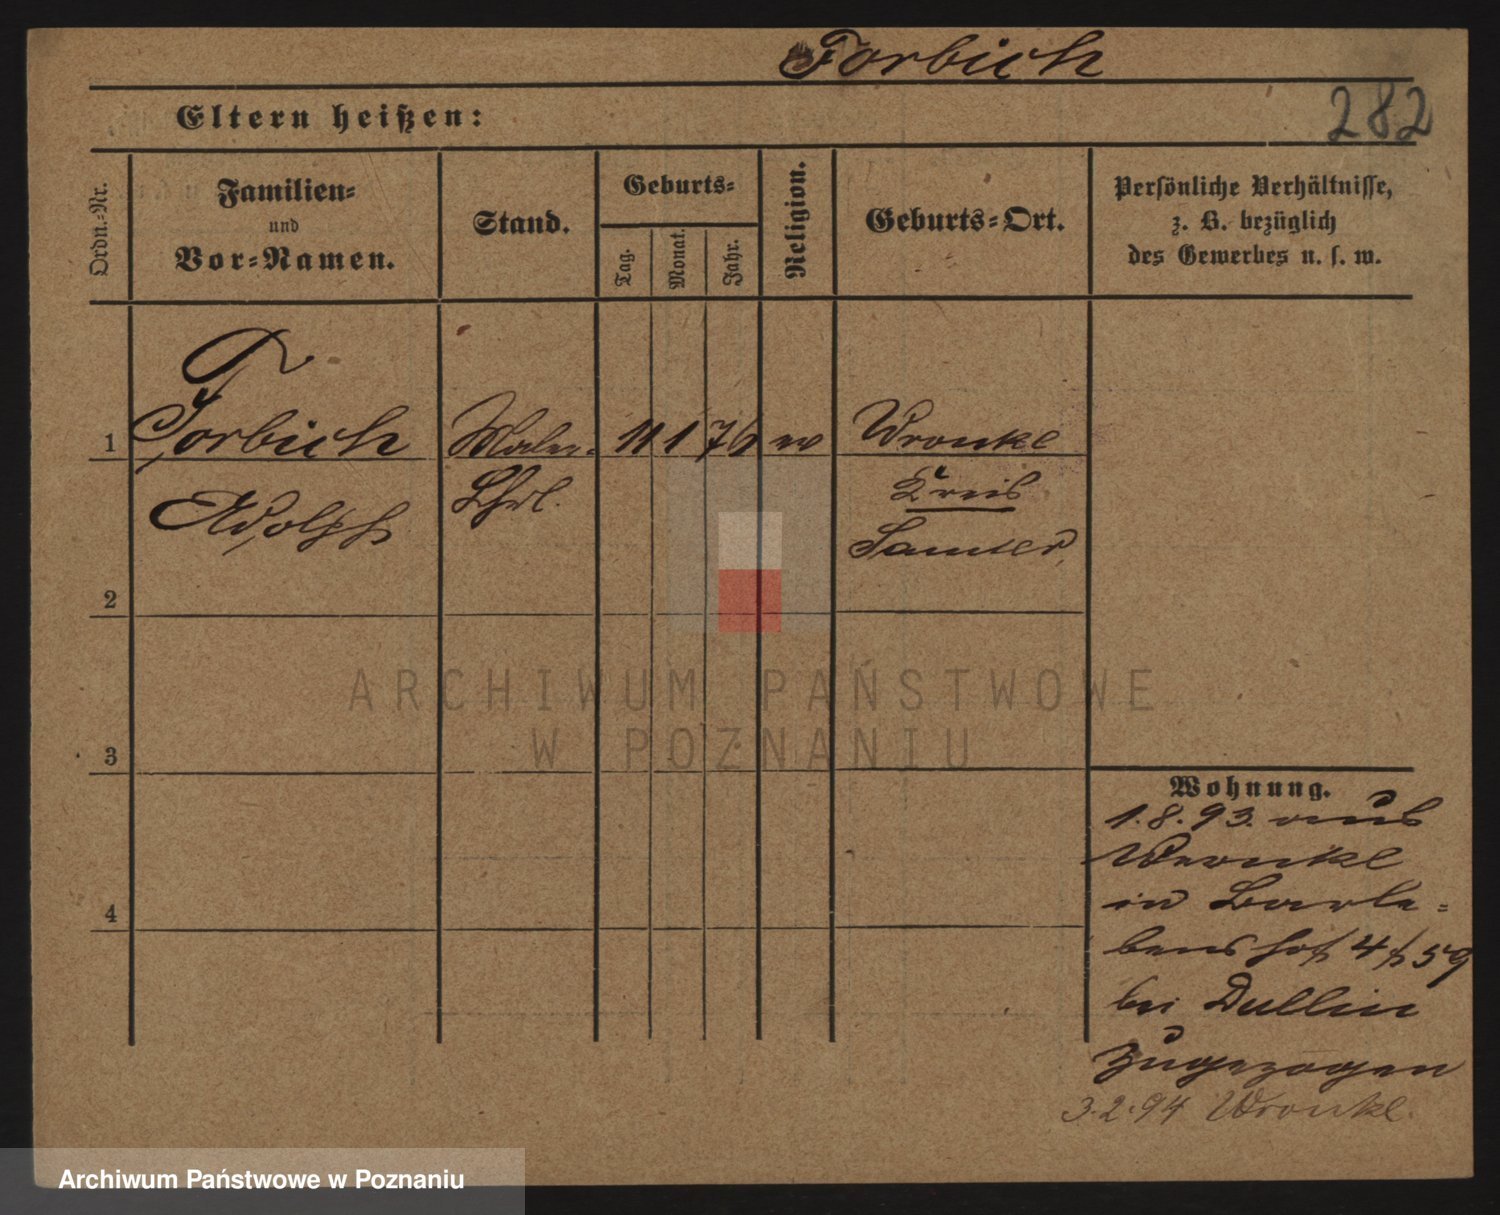 Torbich
282
Eltern heißen:
Ordn.-Nr.
Familien-
und
Vor-Namen.
Stand.
Geburts-
Tag.
Monat.
Jahr.
Religion.
Geburts-Ort.
Persönliche Verhältnisse,
z. B. bezüglich
des Gewerbes u. s. w.
T
1 Torbich Maler- 11 1 76 Wronke
Adolph Lhrl. Kreis
Samter
2
3
4
Wohnung.
1.8.93. aus
Wronke
in Barle-
benshof 4
bei Dullin
zugezogen
3.2.94 Wronke.
ARCHIWUM PAŃSTWOWE
W POZNANIU
Archiwum Państwowe w Poznaniu